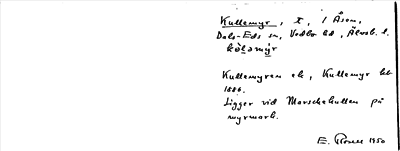 Kullemyr, t, i Åsen,
Dals-Eds sn, Vedbo hd, Älvsb. l.
Kullemyren ek, Kullemyr lht
1886.
Ligger vid Marschekullen på
myrmark.
E. Rosell 1950